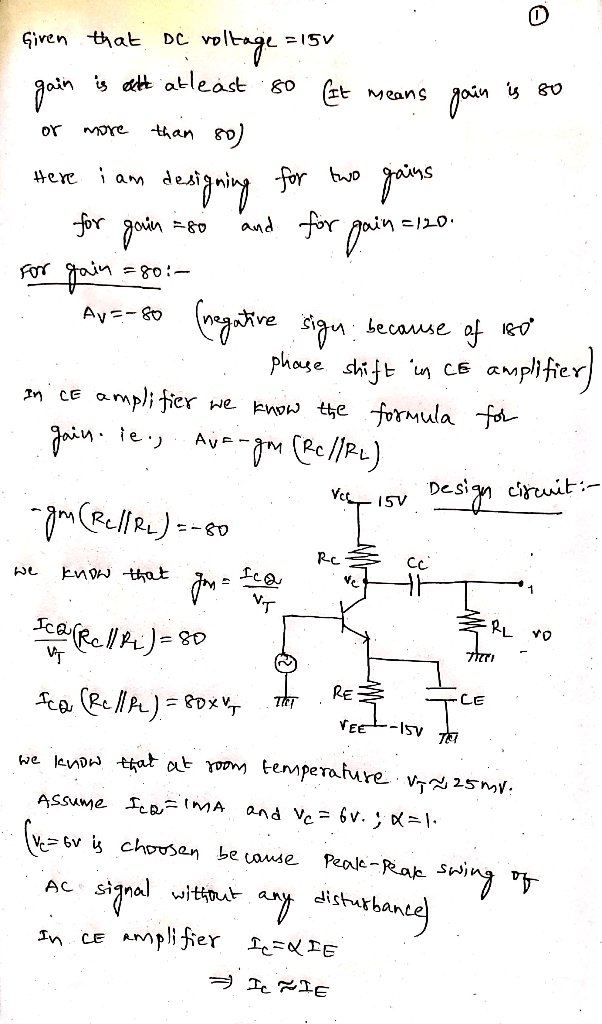 ①
Given that DC voltage = 15V
gain is atleast 80 (It means gain is 80
or more than 80)
Here i am designing for two gains
for gain = 80 and for gain = 120.
For gain = 80:-
AV = -80 (negative sign because of 180°
phase shift in CE amplifier)
In CE amplifier we know the formula for
gain. ie., AV = -gm (RC//RL)
-gm (RC//RL) = -80
Vcc 15V Design circuit:-
we know that gm = ICQ/VT
RC
Vc
CC
ICQ/VT (RC//RL) = 80
RL
vo
ICQ (RC//RL) = 80 x VT
RE
CE
VEE -15V
we know that at room temperature VT ≈ 25mV.
Assume ICQ = 1mA and Vc = 6V. ; α = 1.
(Vc = 6V is choosen because Peak-Peak swing of
AC signal without any disturbance)
In CE amplifier Ic = αIE
⇒ Ic ≈ IE